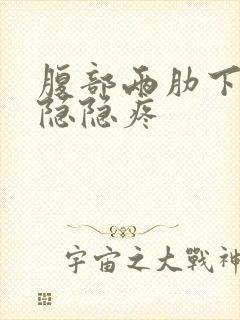 腹部两肋下
隐隐疼
宇宙之大戰神